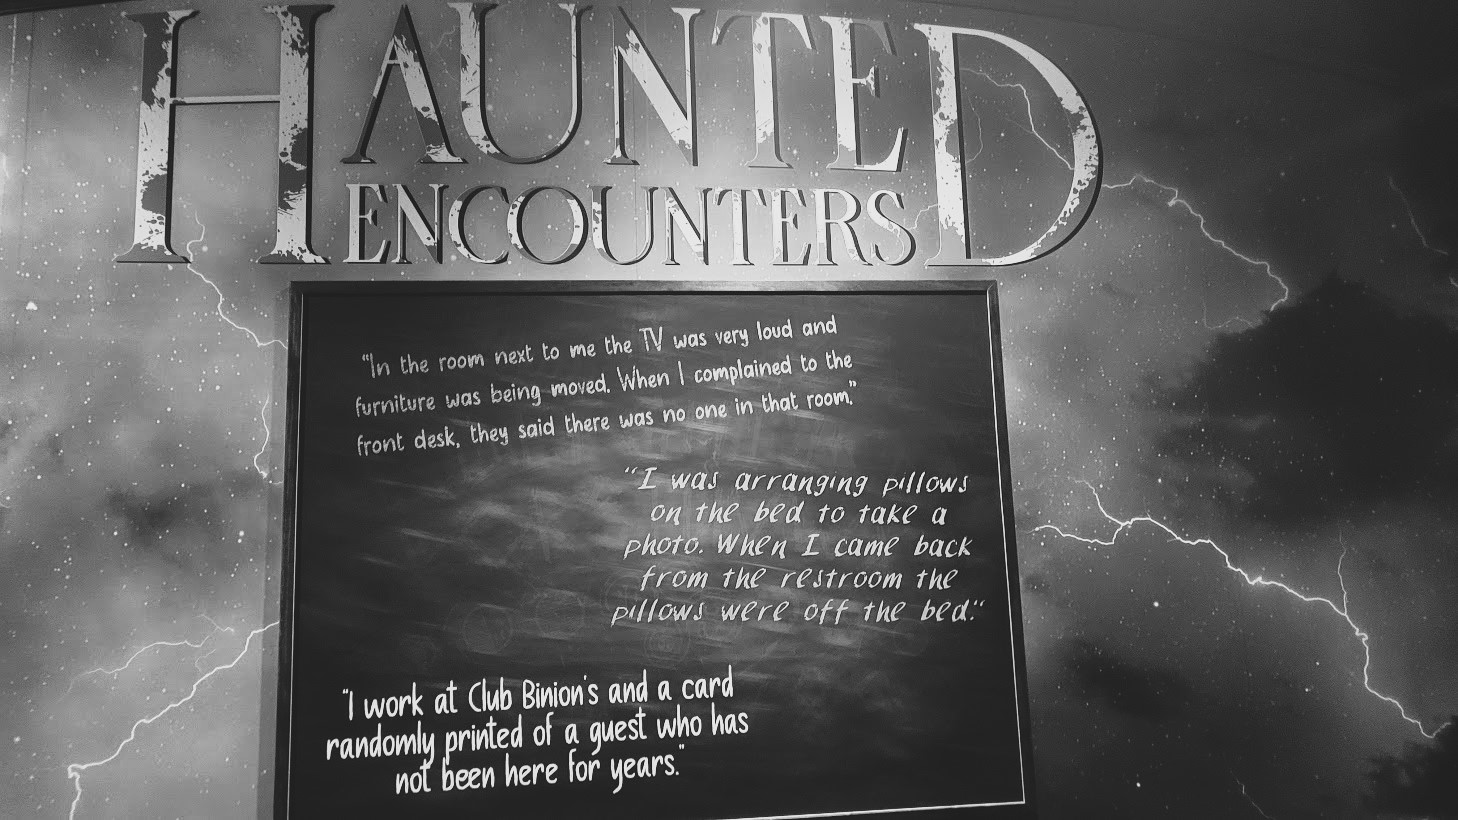 HAUNTED
ENCOUNTERS
"In the room next to me the TV was very loud and
furniture was being moved. When I complained to the
front desk, they said there was no one in that room."
"I was arranging pillows
on the bed to take a
photo. When I came back
from the restroom the
pillows were off the bed."
"I work at Club Binion's and a card
randomly printed of a guest who has
not been here for years."